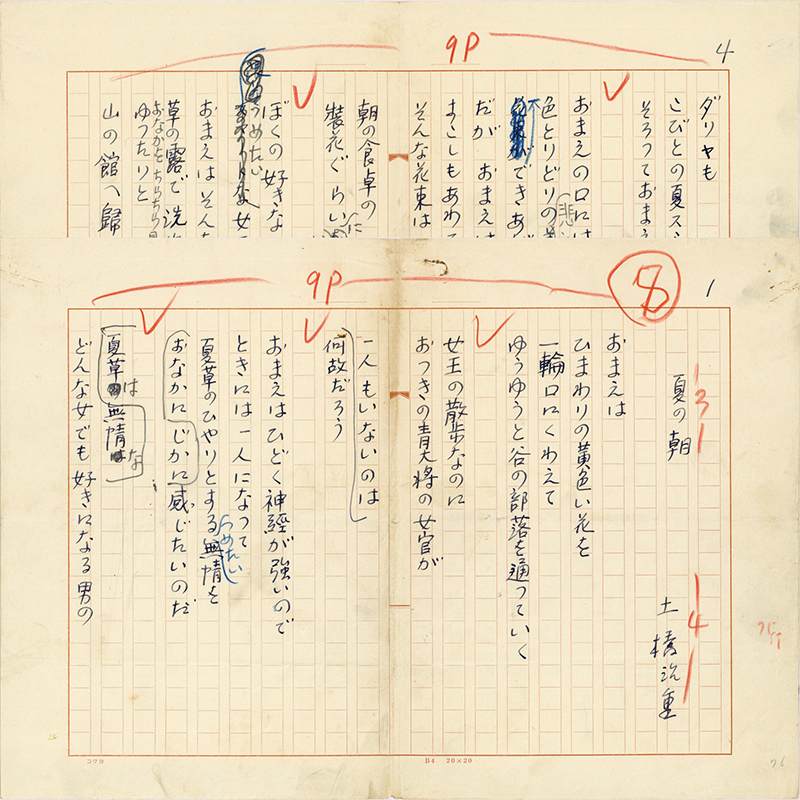 9P
4
ダリヤも
こびとの夏ス
そろっておまえ
おまえの口には
色とりどりの
(悲
ができあが
だが おまえは
すこしもあわて
そんな花束は
朝の食卓の
装花ぐらい
に
ぼくの好きな
つめたい
な女
おまえはそんな
草の露で洗
おなかをちらちら見
ゆったりと
山の館へ歸
9P
8
1
夏の朝
131
土橋治重
141
おまえは
ひまわりの黄色い花を
一輪口にくわえて
ゆうゆうと谷の部落を通っていく
女王の散歩なのに
おつきの青大将の女官が
一人もいないのは
何故だろう
おまえはひどく神經が強いので
ときには一人になって
夏草のひやりとする無情を
つめたい
おなかにじかに感じたいのだ
夏草は無情な
どんな女でも好きになる男の
コクヨ
B4 20×20
76